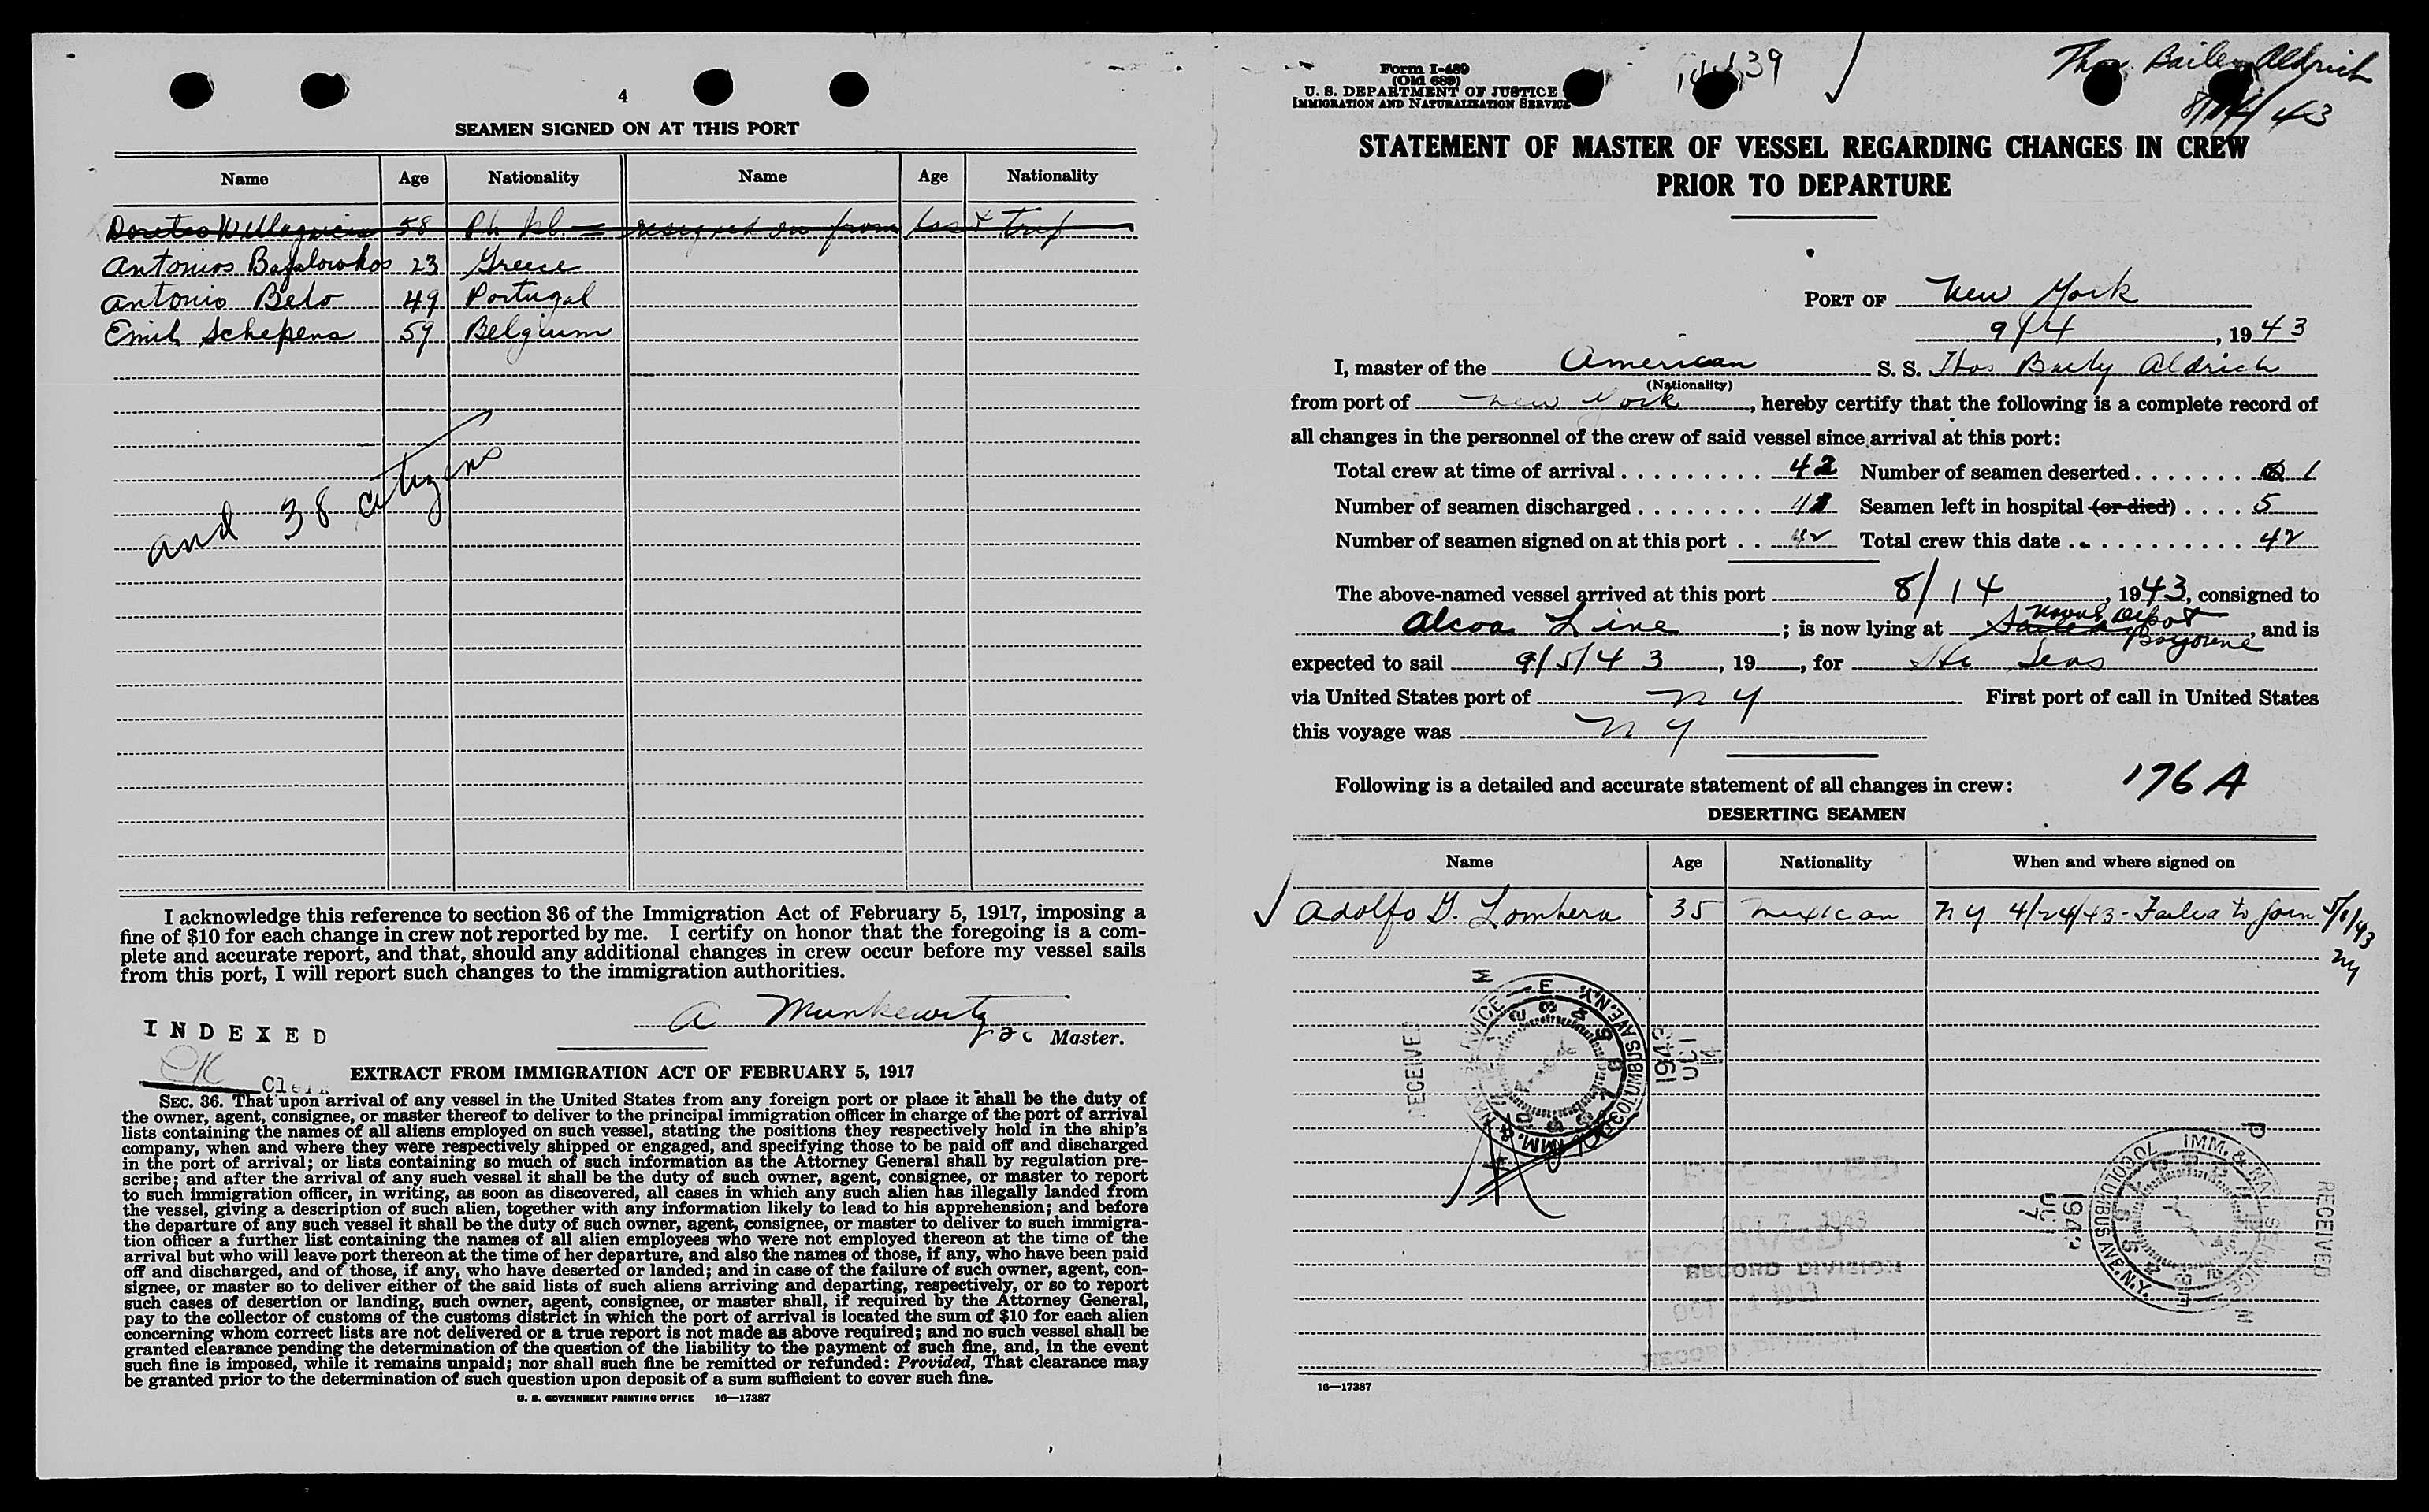 4
SEAMEN SIGNED ON AT THIS PORT
Name Age Nationality Name Age Nationality
58 resigned on from last
Antonios 23 Greece
Antonio Belo 49 Portugal
Emil Schepens 59 Belgium
and 38 citizens
I acknowledge this reference to section 36 of the Immigration Act of February 5, 1917, imposing a
fine of $10 for each change in crew not reported by me. I certify on honor that the foregoing is a com-
plete and accurate report, and that, should any additional changes in crew occur before my vessel sails
from this port, I will report such changes to the immigration authorities.
A Munkewitz
INDEXED
Master.
OK Clerk
EXTRACT FROM IMMIGRATION ACT OF FEBRUARY 5, 1917
SEC. 36. That upon arrival of any vessel in the United States from any foreign port or place it shall be the duty of
the owner, agent, consignee, or master thereof to deliver to the principal immigration officer in charge of the port of arrival
lists containing the names of all aliens employed on such vessel, stating the positions they respectively hold in the ship's
company, when and where they were respectively shipped or engaged, and specifying those to be paid off and discharged
in the port of arrival; or lists containing so much of such information as the Attorney General shall by regulation pre-
scribe; and after the arrival of any such vessel it shall be the duty of such owner, agent, consignee, or master to report
to such immigration officer, in writing, as soon as discovered, all cases in which any such alien has illegally landed from
the vessel, giving a description of such alien, together with any information likely to lead to his apprehension; and before
the departure of any such vessel it shall be the duty of such owner, agent, consignee, or master to deliver to such immigra-
tion officer a further list containing the names of all alien employees who were not employed thereon at the time of the
arrival but who will leave port thereon at the time of her departure, and also the names of those, if any, who have been paid
off and discharged, and of those, if any, who have deserted or landed; and in case of the failure of such owner, agent, con-
signee, or master so to deliver either of the said lists of such aliens arriving and departing, respectively, or so to report
such cases of desertion or landing, such owner, agent, consignee, or master shall, if required by the Attorney General,
pay to the collector of customs of the customs district in which the port of arrival is located the sum of $10 for each alien
concerning whom correct lists are not delivered or a true report is not made as above required; and no such vessel shall be
granted clearance pending the determination of the question of the liability to the payment of such fine, and, in the event
such fine is imposed, while it remains unpaid; nor shall such fine be remitted or refunded: Provided, That clearance may
be granted prior to the determination of such question upon deposit of a sum sufficient to cover such fine.
U. S. GOVERNMENT PRINTING OFFICE 16—17387
Form I-489
(Old 689)
U. S. DEPARTMENT OF JUSTICE
IMMIGRATION AND NATURALIZATION SERVICE
Thos Bailey Aldrich
8/14/43
STATEMENT OF MASTER OF VESSEL REGARDING CHANGES IN CREW
PRIOR TO DEPARTURE
PORT OF New York
9/4, 1943
I, master of the American S. S. Thos Baily Aldrich
(Nationality)
from port of New York, hereby certify that the following is a complete record of
all changes in the personnel of the crew of said vessel since arrival at this port:
Total crew at time of arrival 42 Number of seamen deserted 1
Number of seamen discharged 41 Seamen left in hospital (or died) 5
Number of seamen signed on at this port 42 Total crew this date 42
The above-named vessel arrived at this port 8/14, 1943, consigned to
Alcoa Line; is now lying at Naval Depot Bayonne, and is
expected to sail 9/5/43, 19, for Seas
via United States port of NY First port of call in United States
this voyage was NY
Following is a detailed and accurate statement of all changes in crew:
176 A
DESERTING SEAMEN
Name Age Nationality When and where signed on
Adolfo G. Lombera 35 Mexican NY 4/24/43 - Failed to join 5/1/43
NY
RECEIVED
IMM. & NAT. SERVICE
70 COLUMBUS AVE. N.Y.
1943 OCT
RECORD DIVISION
IMM. & NAT. SERVICE
70 COLUMBUS AVE. N.Y.
1943 OCT 7
RECEIVED
16—17387